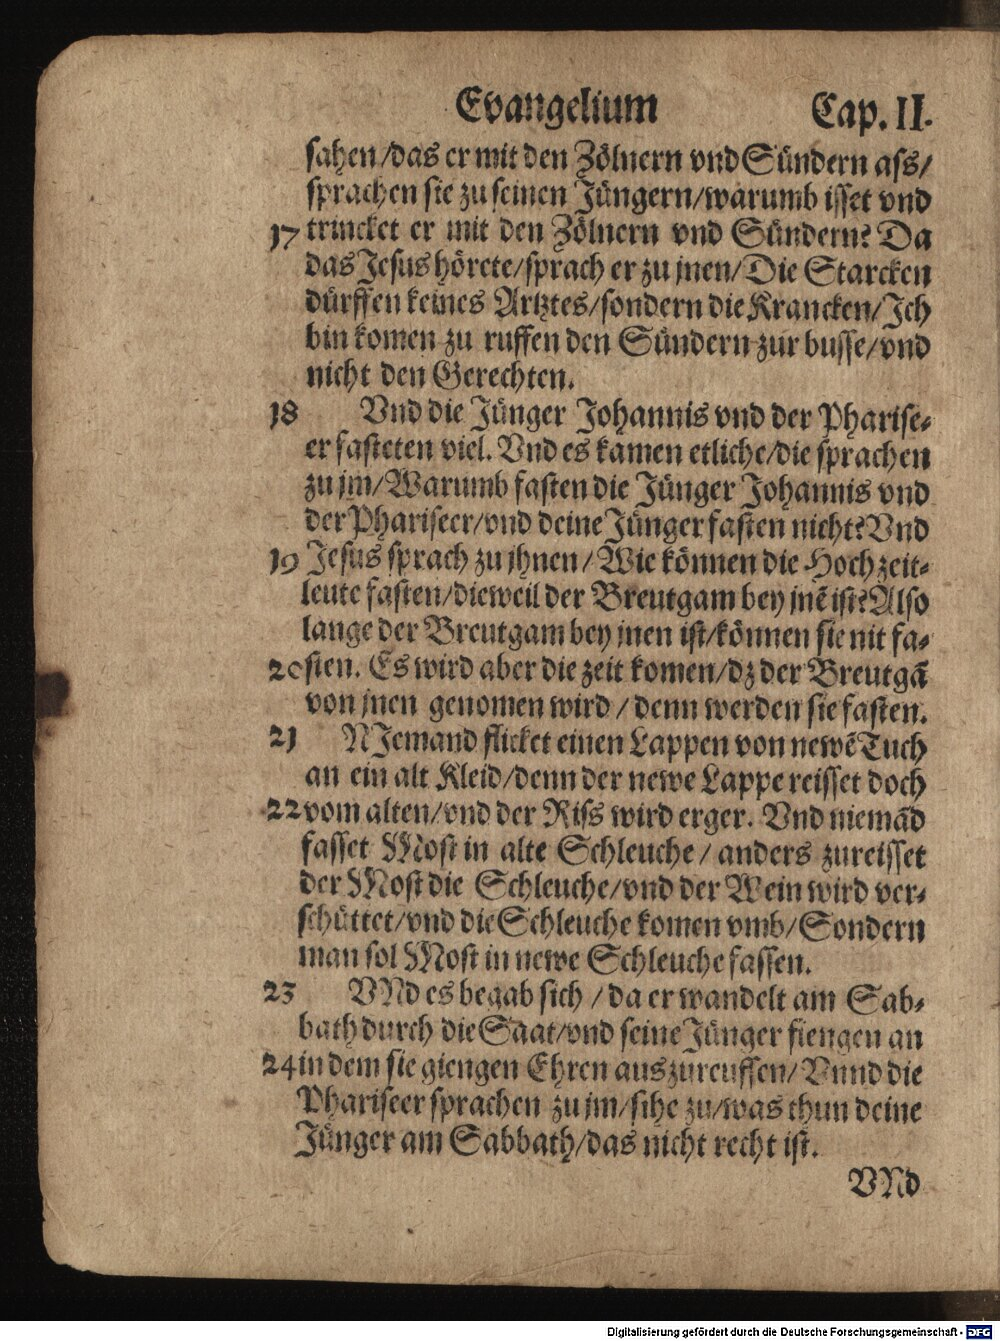 Evangelium Cap. II.
sahen/das er mit den Zölnern vnd Sündern ass/
sprachen sie zu seinen Jüngern/warumb isset vnd
17 trincket er mit den Zölnern vnd Sündern? Da
das Jesus hörete/sprach er zu jnen/Die Starcken
dürffen keines Artztes/sondern die Krancken/Ich
bin komen zu ruffen den Sündern zur busse/vnd
nicht den Gerechten.
18 Vnd die Jünger Johannis vnd der Pharise-
er fasteten viel. Vnd es kamen etliche/die sprachen
zu jm/Warumb fasten die Jünger Johannis vnd
der Phariseer/vnd deine Jünger fasten nicht? Vnd
19 Jesus sprach zu jhnen/Wie können die Hochzeit-
leute fasten/dieweil der Breutgam bey jnē ist? Also
lange der Breutgam bey jnen ist/können sie nit fa-
20 sten. Es wird aber die zeit komen/dz der Breutgā
von jnen genomen wird/denn werden sie fasten.
21 NJemand flicket einen Lappen von newē Tuch
an ein alt Kleid/denn der newe Lappe reisset doch
22 vom alten/vnd der Riss wird erger. Vnd niemād
fasset Most in alte Schleuche/anders zureisset
der Most die Schleuche/vnd der Wein wird ver-
schüttet/vnd die Schleuche komen vmb/Sondern
man sol Most in newe Schleuche fassen.
23 VNd es begab sich/da er wandelt am Sab-
bath durch die Saat/vnd seine Jünger fiengen an
24 in dem sie giengen Ehren auszureuffen/Vnnd die
Phariseer sprachen zu jm/sihe zu/was thun deine
Jünger am Sabbath/das nicht recht ist.
VNd
Digitalisierung gefördert durch die Deutsche Forschungsgemeinschaft - DFG